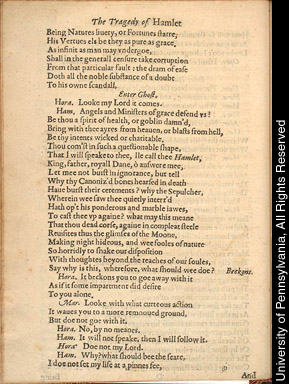 The Tragedy of Hamlet
Being Natures liuery, or Fortunes starre,
His Vertues els be they as pure as grace,
As infinit as man may vndergoe,
Shall in the generall censure take corruption
From that particular fault: the dram of ease
Doth all the noble substance of a doubt
To his owne scandall,
Enter Ghost.
Hora. Looke my Lord it comes.
Ham. Angels and Ministers of grace defend vs?
Be thou a spirit of health, or goblin damn'd,
Bring with thee ayres from heauen, or blasts from hell,
Be thy intents wicked or charitable,
Thou com'st in such a questionable shape,
That I will speake to thee, Ile call thee Hamlet,
King, father, royall Dane, ô answere mee,
Let mee not burst in ignorance, but tell
Why thy Canoniz'd bones hearsed in death
Haue burst their cerements? why the Sepulcher,
Wherein wee saw thee quietly interr'd
Hath op't his ponderous and marble iawes,
To cast thee vp againe? what may this meane
That thou dead corse, againe in compleat steele
Reuisites thus the glimses of the Moone,
Making night hideous, and wee fooles of nature
So horridly to shake our disposition
With thoughts beyond the reaches of our soules,
Say why is this, wherefore, what should wee doe? Beckgns.
Hora. It beckons you to goe away with it
As if it some impartment did desire
To you alone,
Mar. Looke with what curteous action
It waues you to a more remooued ground,
But doe not goe with it.
Hora. No, by no meanes.
Ham. It will not speake, then I will follow it.
Hora. Doe not my Lord.
Ham. Why? what should bee the feare,
I doe not set my life at a pinnes fee,
And
University of Pennsylvania, All Rights Reserved